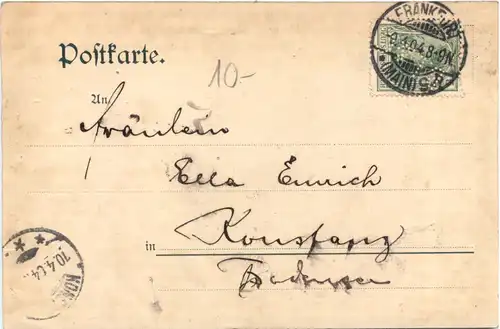 FRANKFURT
9.4.04.8-9N.
*(MAIN)5
Postkarte.
10-
An
Fräulein
Ella Emrich
in Konstanz
Bodensee
10.4.04
KON